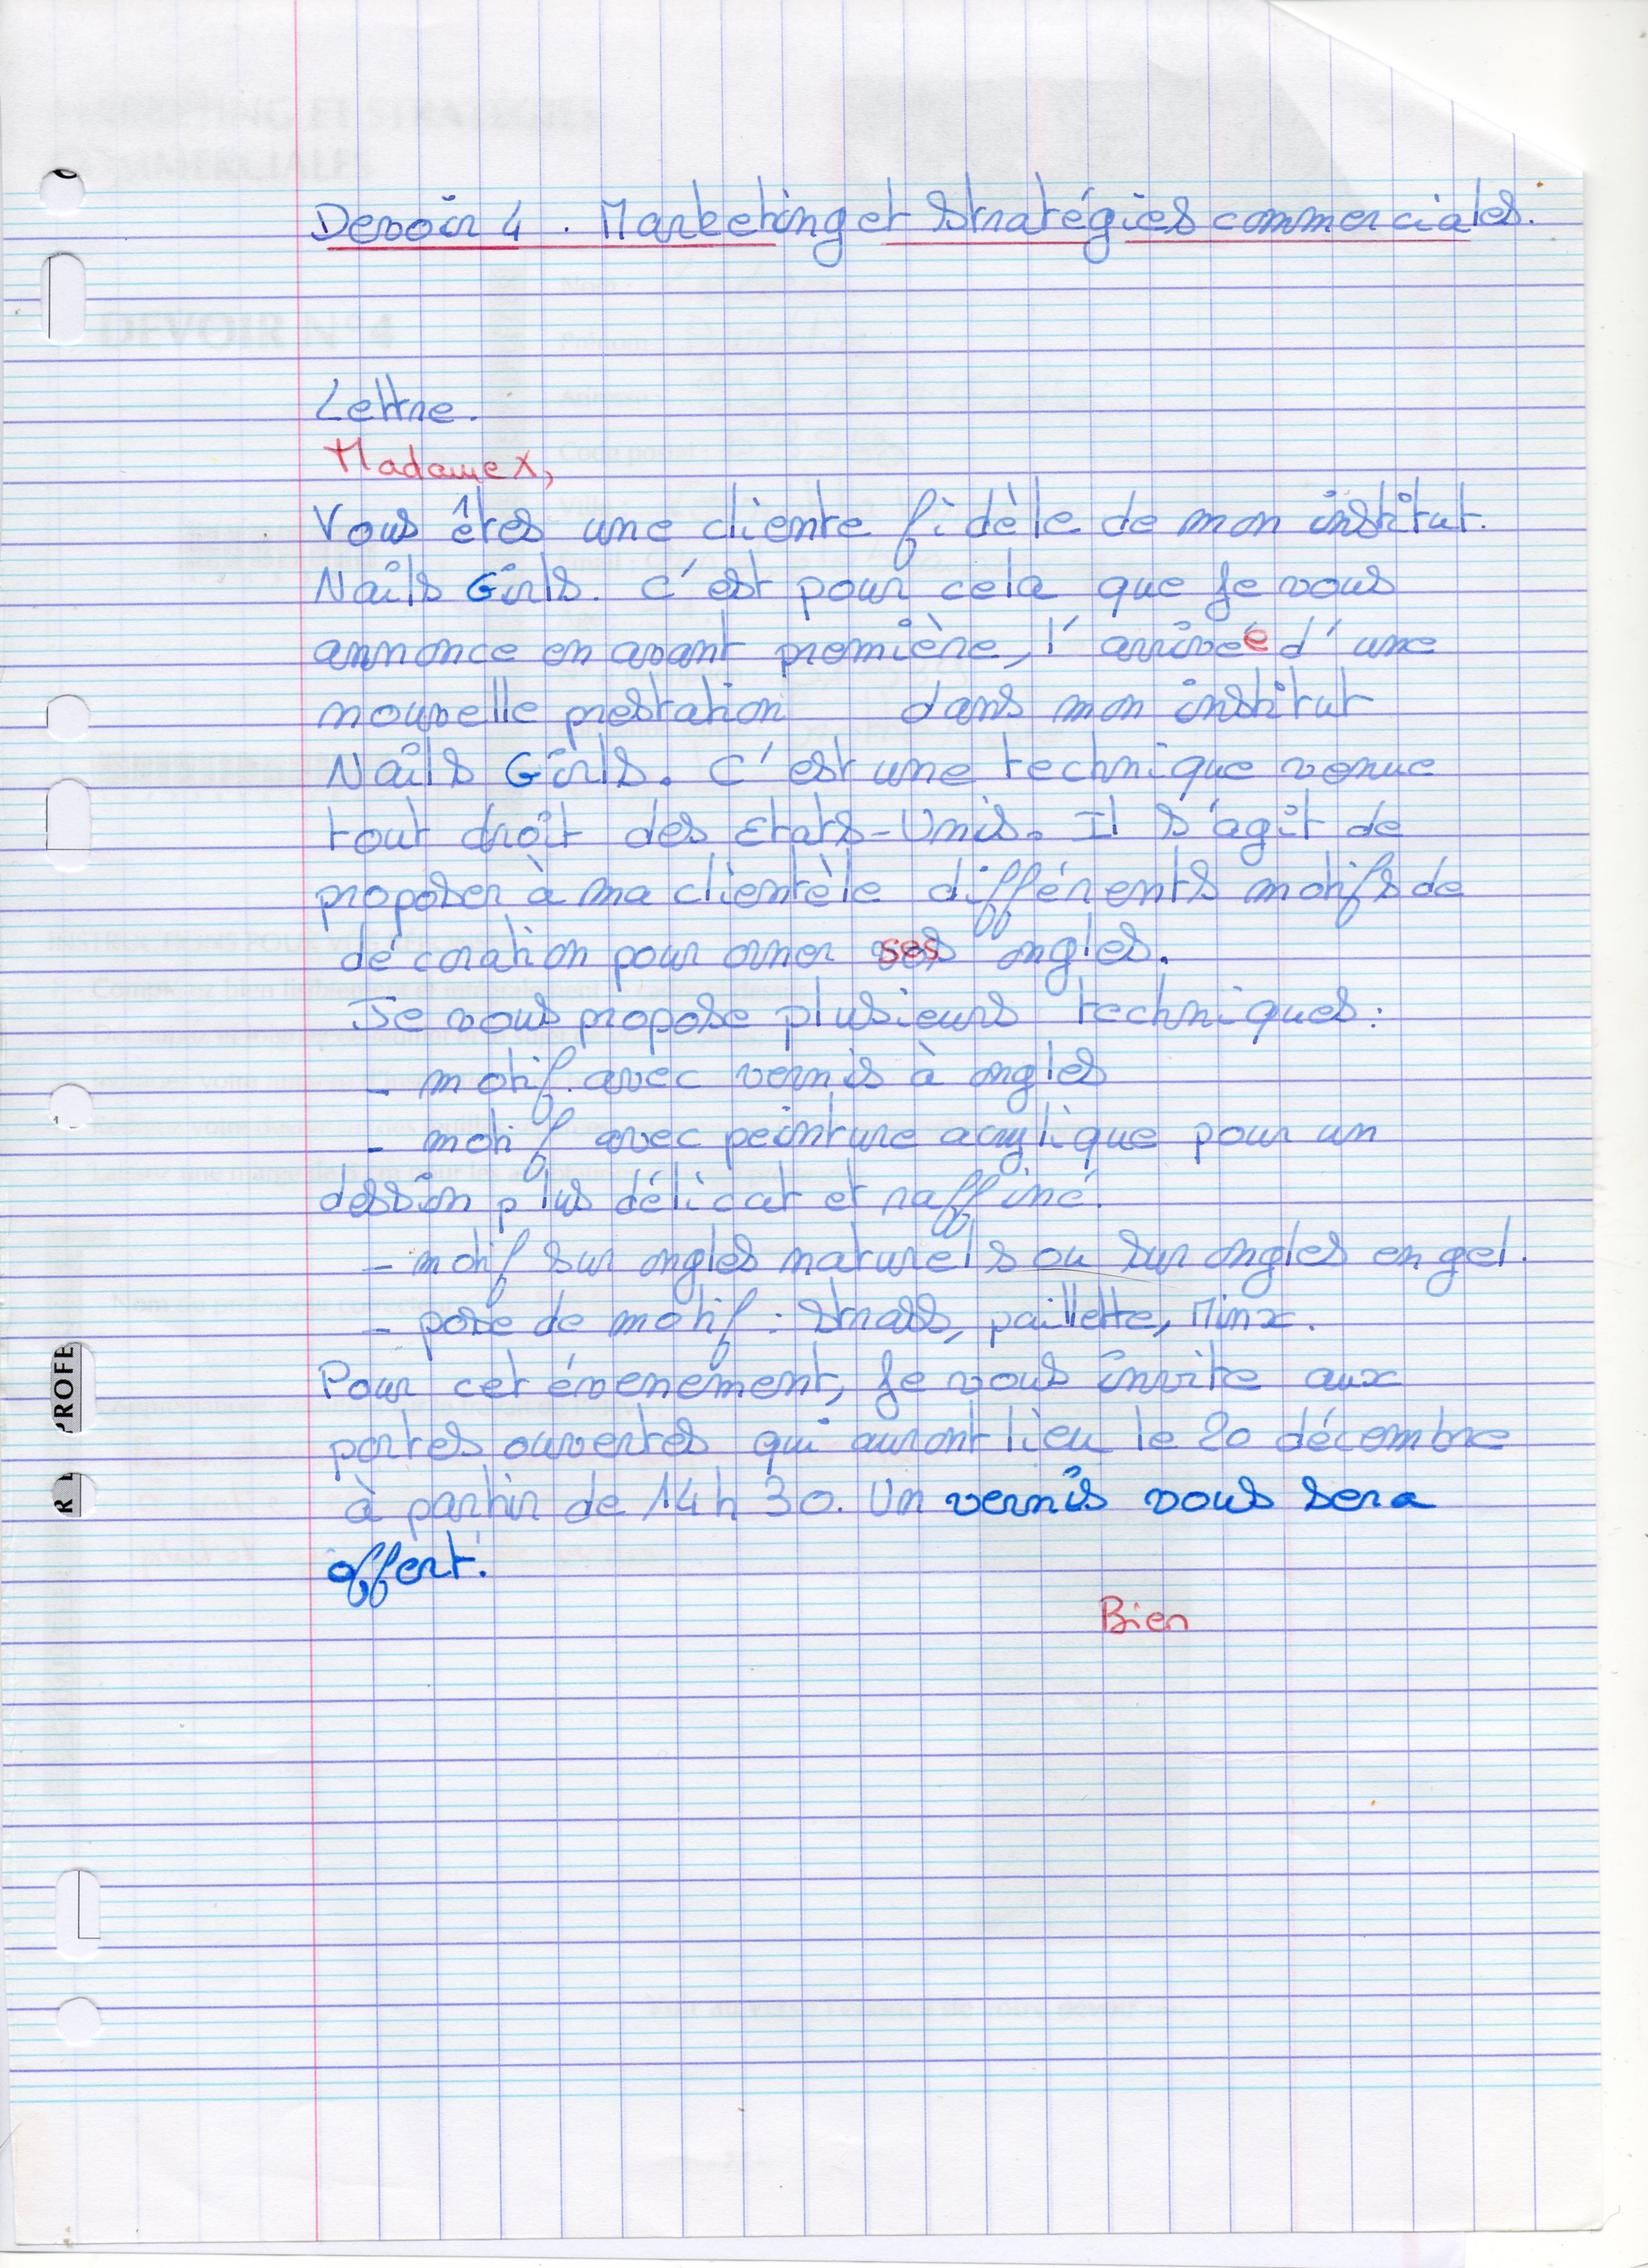 Devoir 4. Marketing et Stratégies commerciales.
Lettre.
Madame X,
Vous êtes une cliente fidèle de mon institut.
Nails Girls. C'est pour cela que je vous
annonce en avant première, l'arrivée d'une
nouvelle prestation dans mon institut
Nails Girls. C'est une technique venue
tout droit des Etats-Unis. Il s'agit de
proposer à ma clientèle différents motifs de
décoration pour orner ses ongles.
Je vous propose plusieurs techniques :
- motif avec vernis à ongles
- motif avec peinture acrylique pour un
dessin plus délicat et raffiné.
- motif sur ongles naturels ou sur ongles en gel.
- pose de motif : Strass, paillette, Minx.
Pour cet évenement, je vous invite aux
portes ouvertes qui auront lieu le 20 décembre
à partir de 14h30. Un vernis vous sera
offert.
Bien
PROFE
R